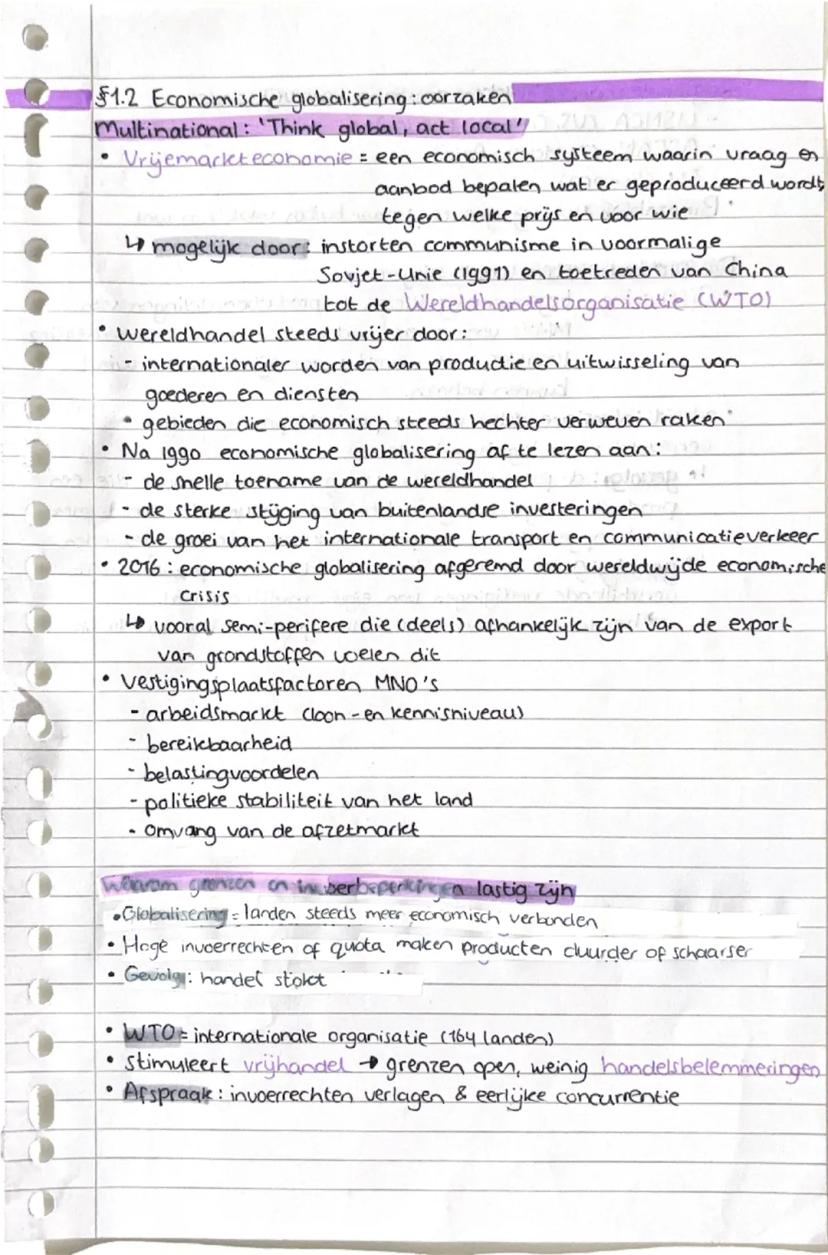 §1.2 Economische globalisering: oorzaken
Multinational: 'Think global, act local'
• Vrijemarkteconomie = een economisch systeem waarin vraag en
aanbod bepalen wat er geproduceerd wordt,
tegen welke prijs en voor wie
↳ mogelijk door: instorten communisme in voormalige
Sovjet-Unie (1991) en toetreden van China
tot de Wereldhandelsorganisatie (WTO)
• wereldhandel steeds vrijer door:
- internationaler worden van productie en uitwisseling van
goederen en diensten
• gebieden die economisch steeds hechter verweven raken
• Na 1990 economische globalisering af te lezen aan:
- de snelle toename van de wereldhandel
- de sterke stijging van buitenlandse investeringen
- de groei van het internationale transport en communicatieverkeer
• 2016: economische globalisering afgeremd door wereldwijde economische
crisis
↳ vooral semi-perifere die (deels) afhankelijk zijn van de export
van grondstoffen voelen dit
• Vestigingsplaatsfactoren MNO's
- arbeidsmarkt (loon- en kennisniveau)
- bereikbaarheid
- belastingvoordelen
- politieke stabiliteit van het land
- omvang van de afzetmarkt
Waarom grenzen en lastig zijn
• Globalisering = landen steeds meer economisch verbonden
• Hoge invoerrechten of quota maken producten duurder of schaarser
• Gevolg: handel stokt
• WTO = internationale organisatie (164 landen)
• stimuleert vrijhandel → grenzen open, weinig handelsbelemmeringen
• Afspraak: invoerrechten verlagen & eerlijke concurrentie